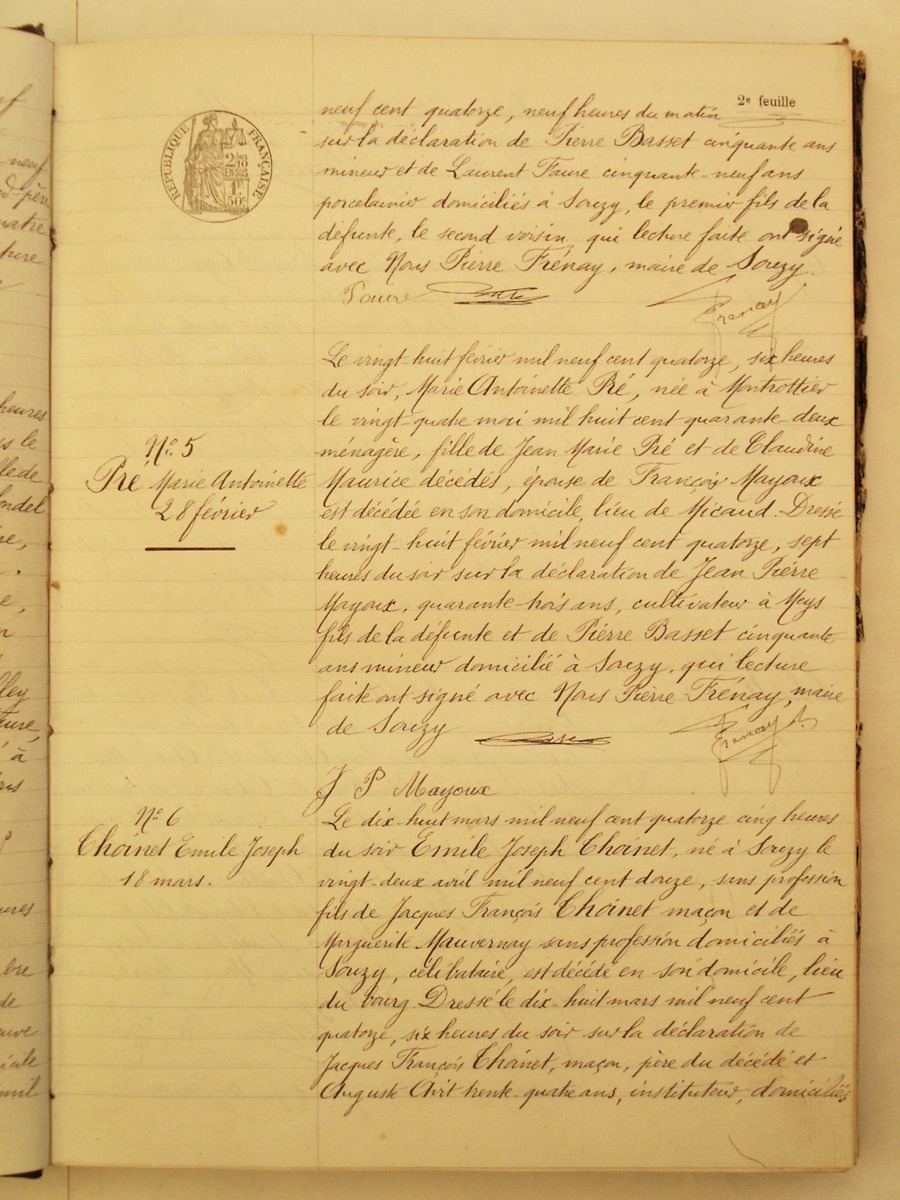 2e feuille
RÉPUBLIQUE FRANÇAISE
2/10
EN SUS
1F
50c
neuf cent quatorze, neuf heures du matin
sur la déclaration de Pierre Basset cinquante ans
mineur et de Laurent Faure cinquante-neuf ans
porcelainier domiciliés à Souzy, le premier fils de la
défunte, le second voisin, qui lecture faite ont signé
avec Nous Pierre Frénay, maire de Souzy.
Frenay
Le vingt-huit février mil neuf cent quatorze, six heures
du soir, Marie Antoinette Pré, née à Montrottier
le vingt-quatre mai mil huit cent quarante-deux
ménagère, fille de Jean Marie Pré et de Claudine
Maurice décédés, épouse de François Mayoux
est décédée en son domicile, lieu de Micaud. Dressé
le vingt-huit février mil neuf cent quatorze, sept
heures du soir sur la déclaration de Jean Pierre
Mayoux, quarante-trois ans, cultivateur à Meys
fils de la défunte et de Pierre Basset cinquante
ans mineur domicilié à Souzy, qui lecture
faite ont signé avec Nous Pierre Frénay, maire
de Souzy
Frenay
J P Mayoux
No 5
Pré Marie Antoinette
28 février
Le dix-huit mars mil neuf cent quatorze cinq heures
du soir Emile Joseph Thoinet, né à Souzy le
vingt-deux avril mil neuf cent douze, sans profession
fils de Jacques François Thoinet maçon et de
Marguerite Mauvernay sans profession domiciliés à
Souzy, célibataire, est décédé en son domicile, lieu
du bourg. Dressé le dix-huit mars mil neuf cent
quatorze, six heures du soir sur la déclaration de
Jacques François Thoinet, maçon, père du décédé et
Auguste trente-quatre ans, instituteur, domiciliés
No 6
Thoinet Emile Joseph
18 mars.